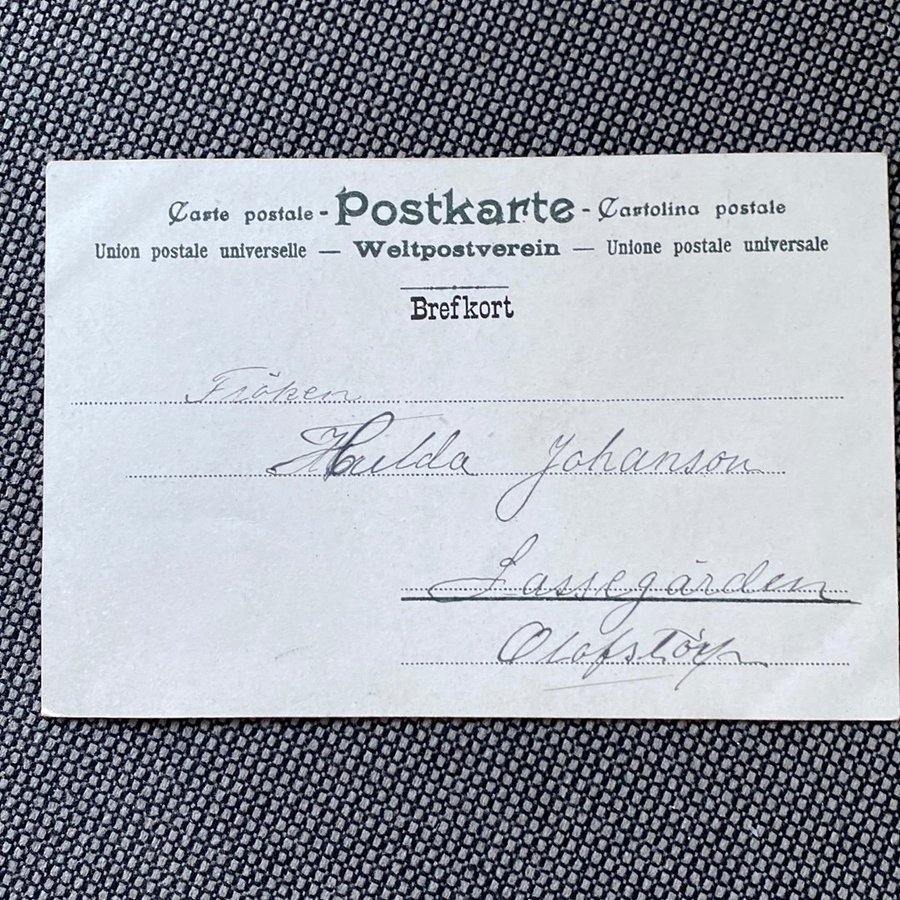 Carte postale - Postkarte - Cartolina postale
Union postale universelle — Weltpostverein — Unione postale universale
Brefkort
Fröken
Hulda Johanson
Lassegården
Olofstorp